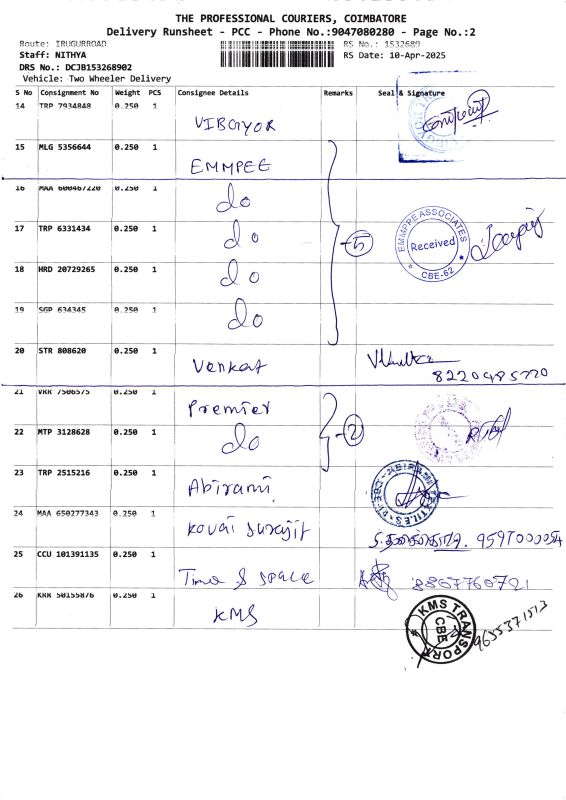 THE PROFESSIONAL COURIERS, COIMBATORE
Delivery Runsheet - PCC - Phone No.:9047080280 - Page No.:2
Route: IRUGURROAD
RS No.: 1532689
Staff: NITHYA
RS Date: 10-Apr-2025
DRS No.: DCJB153268902
Vehicle: Two Wheeler Delivery
S No Consignment No Weight PCS Consignee Details Remarks Seal & Signature
14 TRP 7934848 0.250 1 VIBGYOR
15 MLG 5356644 0.250 1 EMMPEE
16 MAA 600467220 0.250 1 do
17 TRP 6331434 0.250 1 do -5 EMMPPE ASSOCIATES Received CBE-62
18 HRD 20729265 0.250 1 do
19 SGP 634345 0.250 1 do
20 STR 808620 0.250 1 Venkat 8220485770
21 VRR 7506575 0.250 1 Premier
22 MTP 3128628 0.250 1 do -2
23 TRP 2515216 0.250 1 Abirami
24 MAA 650277343 0.250 1 Kovai Surajit 9597000054
25 CCU 101391135 0.250 1 Time & Space 8867760721
26 KRR 50155876 0.250 1 KMS KMS TRANSPORT CBE 9655371513